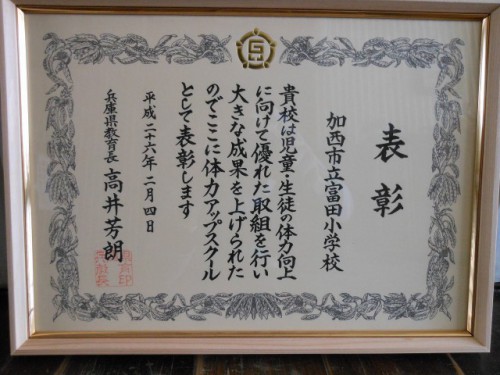 表彰
加西市立富田小学校
貴校は児童・生徒の体力向上
に向けて優れた取組を行い
大きな成果を上げられた
のでここに体力アップスクール
として表彰します
平成二十六年二月四日
兵庫県教育長 高井芳朗